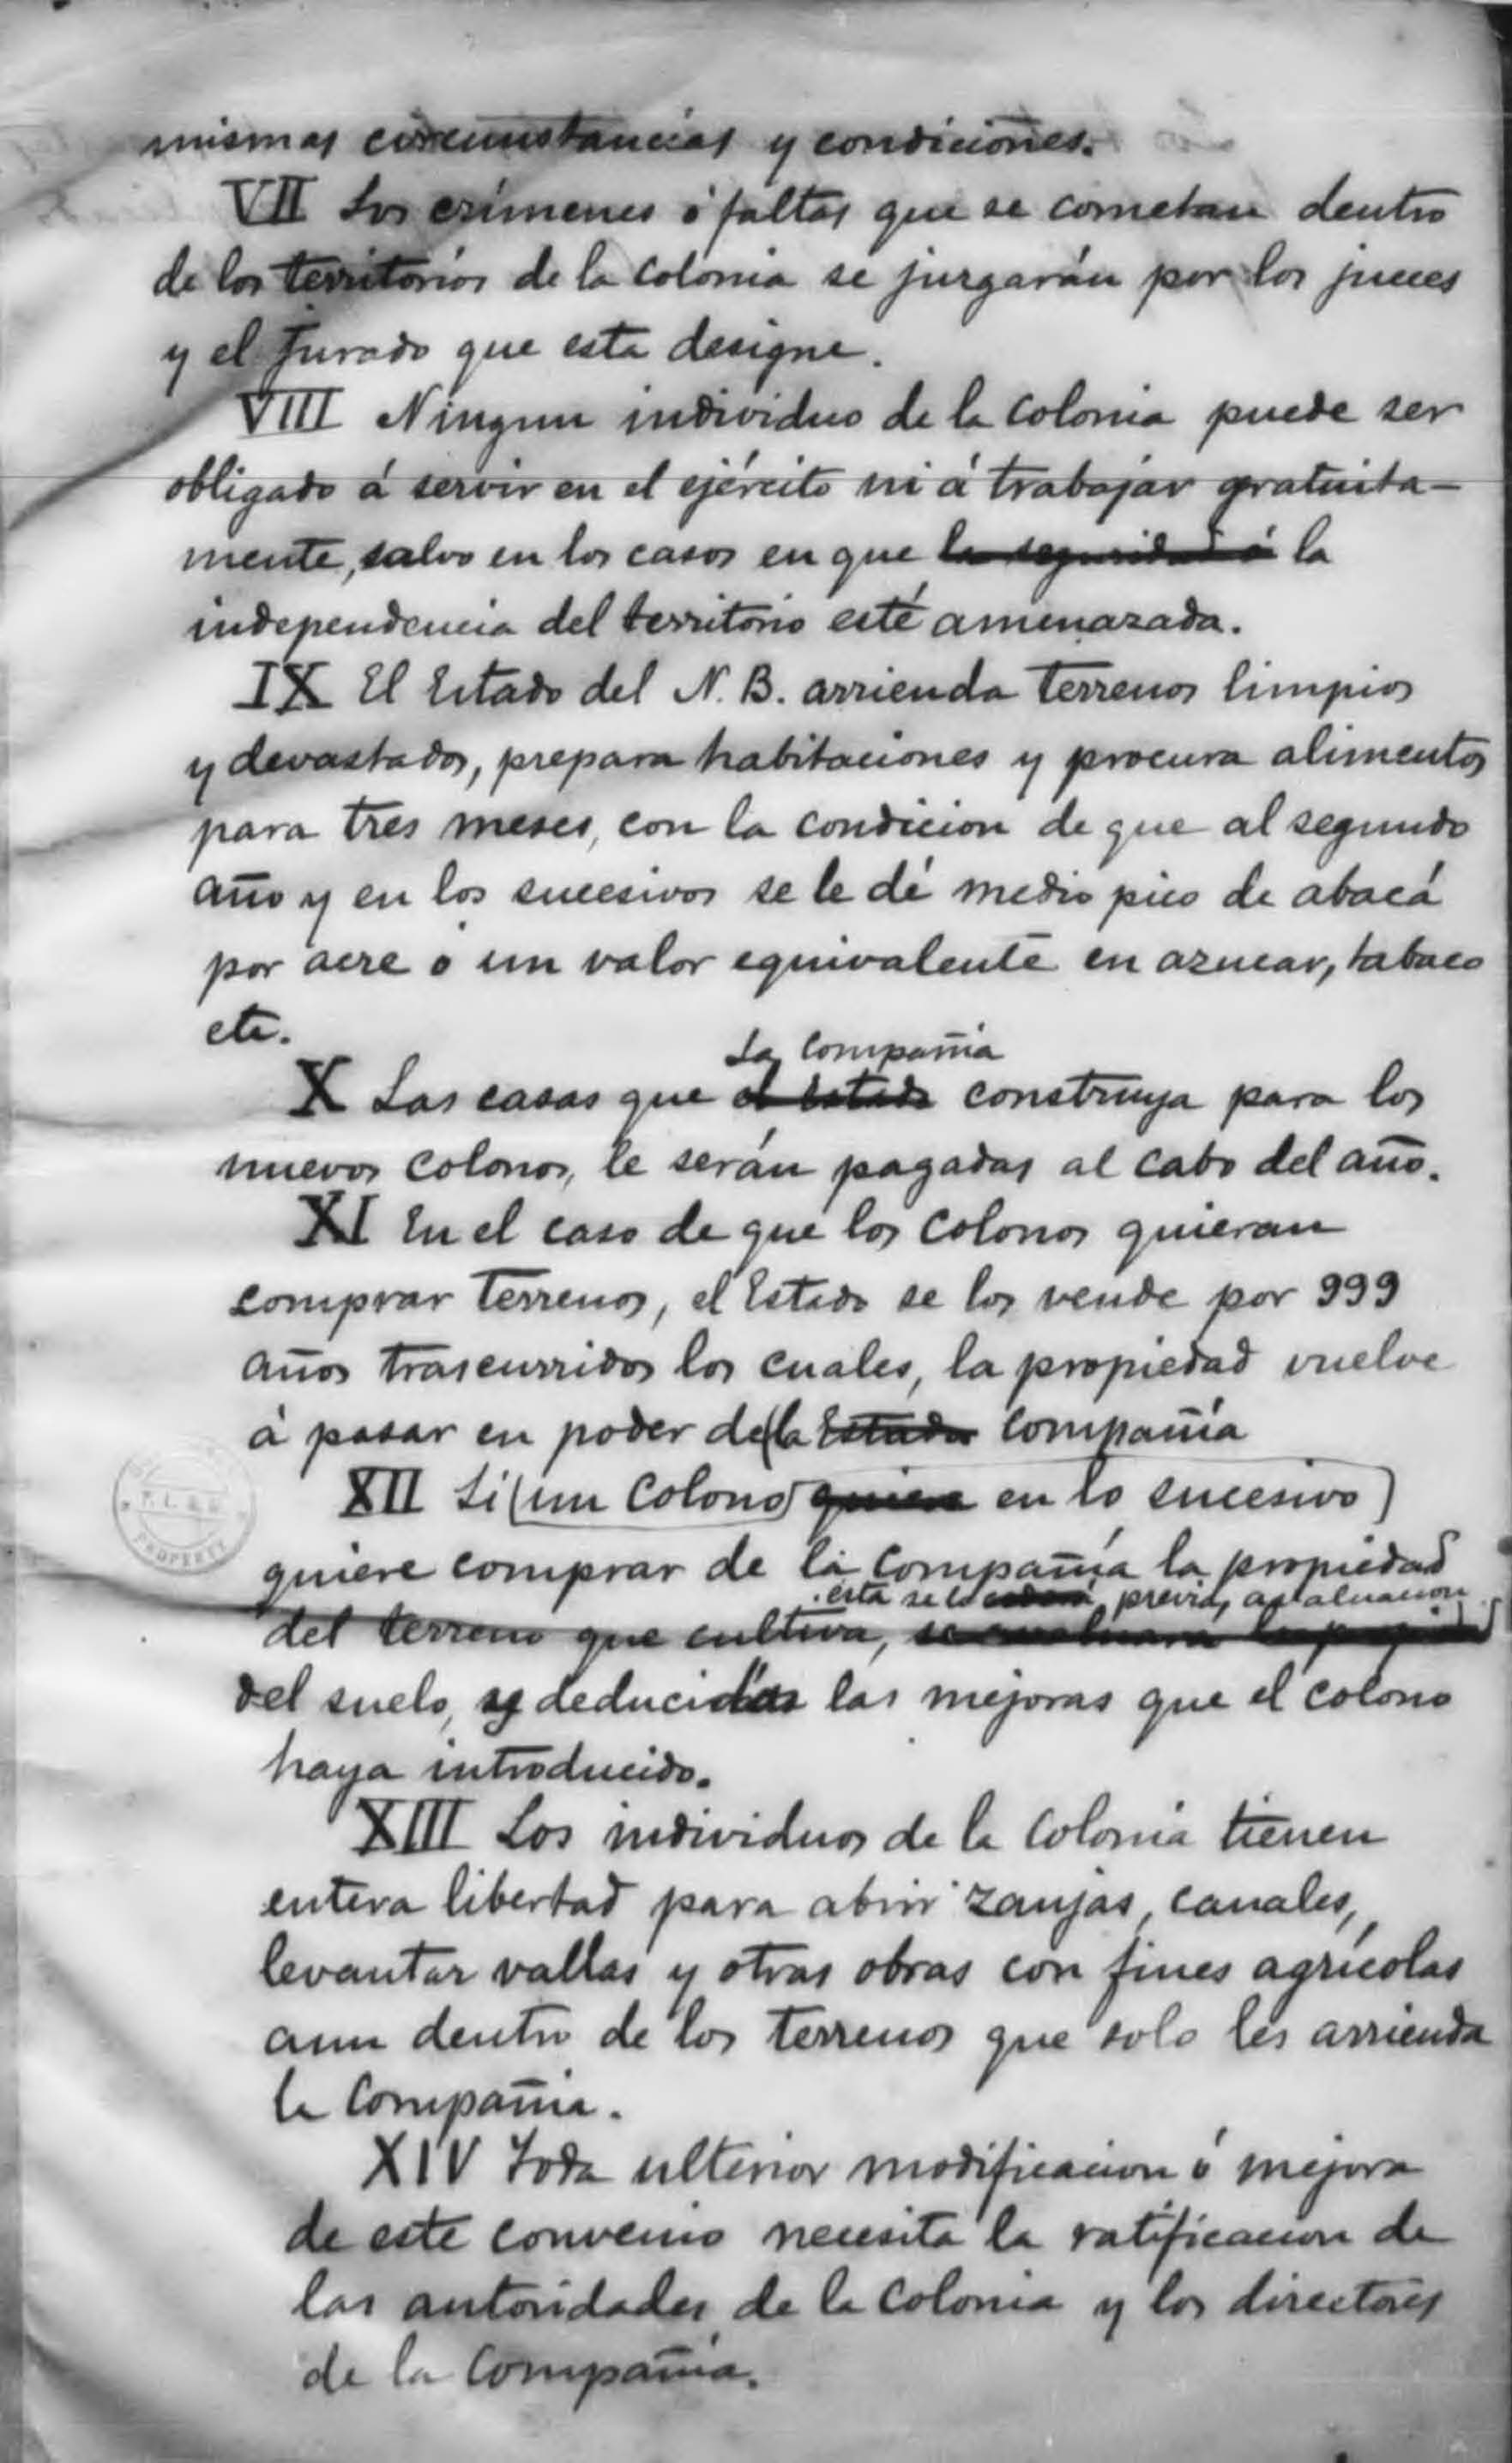 mismas circumstancias y condiciones.
VII Los crimenes ó faltas que se cometan dentro
de los territorios de la Colonia se juzgarán por los jueces
y el Jurado que esta designe.
VIII Ningun individuo de la Colonia puede ser
obligado á servir en el ejército ni á trabajar gratuita-
mente, salvo en los casos en que la seguridad ó la
independencia del territorio esté amenazada.
IX El Estado del N. B. arrienda terrenos limpios
y devastados, prepara habitaciones y procura alimentos
para tres meses, con la condicion de que al segundo
año y en los sucesivos se le dé medio pico de abacá
por acre o un valor equivalente en azucar, tabaco
etc.
La Compañia
X Las casas que el Estado construya para los
nuevos colonos, le serán pagadas al cabo del año.
XI En el caso de que los Colonos quieran
comprar terrenos, el Estado se los vende por 999
años trascurridos los cuales, la propiedad vuelve
á pasar en poder de la Estado Compañia
XII Si (un Colono) quiere en lo sucesivo)
quiere comprar de la Compañia la propiedad
esta se lo previa
del terreno que cultiva,
del suelo, deducidas las mejoras que el colono
haya introducido.
XIII Los individuos de la Colonia tienen
entera libertad para abrir zanjas, canales,
levantar vallas y otras obras con fines agricolas
aun dentro de los terrenos que solo les arrienda
la Compañia.
XIV Toda ulterior modificacion ó mejora
de este convenio necesita la ratificacion de
las autoridades de la Colonia y los directores
de la Compañia.
PROPERTY